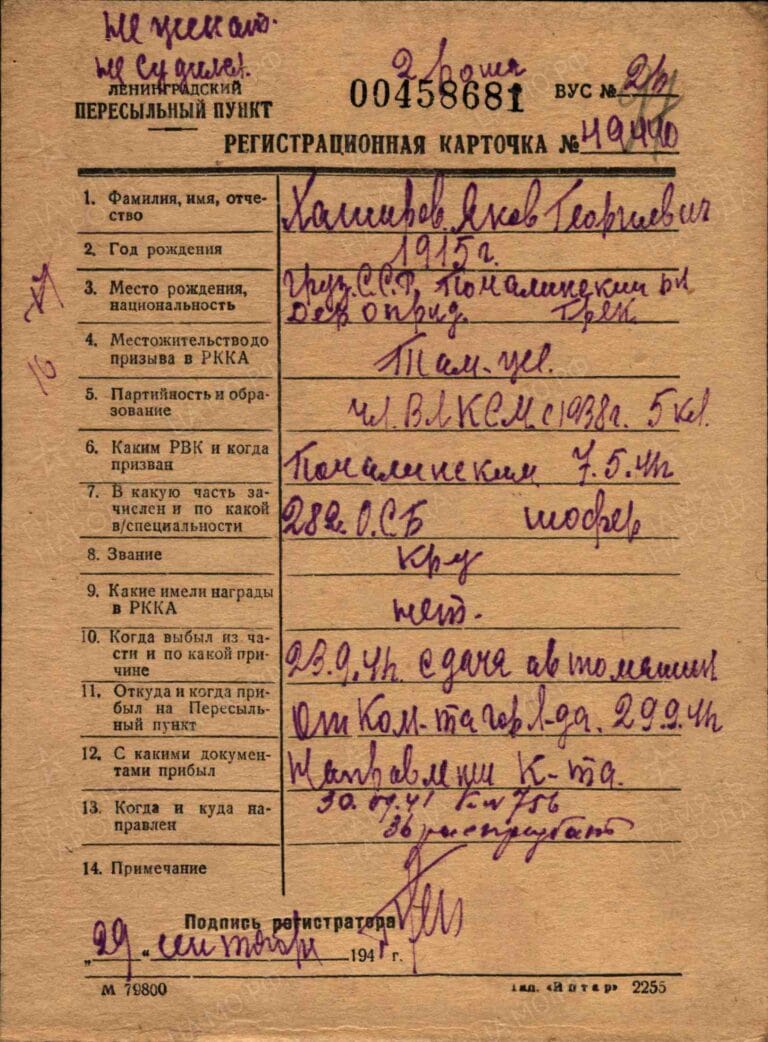 не женат.
не судился.
2 рота
ЛЕНИНГРАДСКИЙ
ПЕРЕСЫЛЬНЫЙ ПУНКТ
00458681
ВУС №
РЕГИСТРАЦИОННАЯ КАРТОЧКА № 49440
1. Фамилия, имя, отче-
ство
Хаширов Яков Георгиевич
2. Год рождения
1915 г.
3. Место рождения,
национальность
Груз. С.С.Р.
Грек
4. Местожительство до
призыва в РККА
Там-же.
5. Партийность и обра-
зование
чл. ВЛКСМ с 1938 г. 5 кл.
6. Каким РВК и когда
призван
7.5.41
7. В какую часть за-
числен и по какой
в/специальности
282 О.С.Б шофер
8. Звание
кр-ц
9. Какие имели награды
в РККА
нет.
10. Когда выбыл из ча-
сти и по какой при-
чине
23.9.41. сдача автомашин
11. Откуда и когда при-
был на Пересыль-
ный пункт
От Ком-та гор Л-да. 29.9.41
12. С какими докумен-
тами прибыл
Направлении К-та.
13. Когда и куда на-
правлен
30.09.41
14. Примечание
Подпись регистратора
„29“ сентября 1941 г.
М 79800
Тип. «Янтарь» 2255